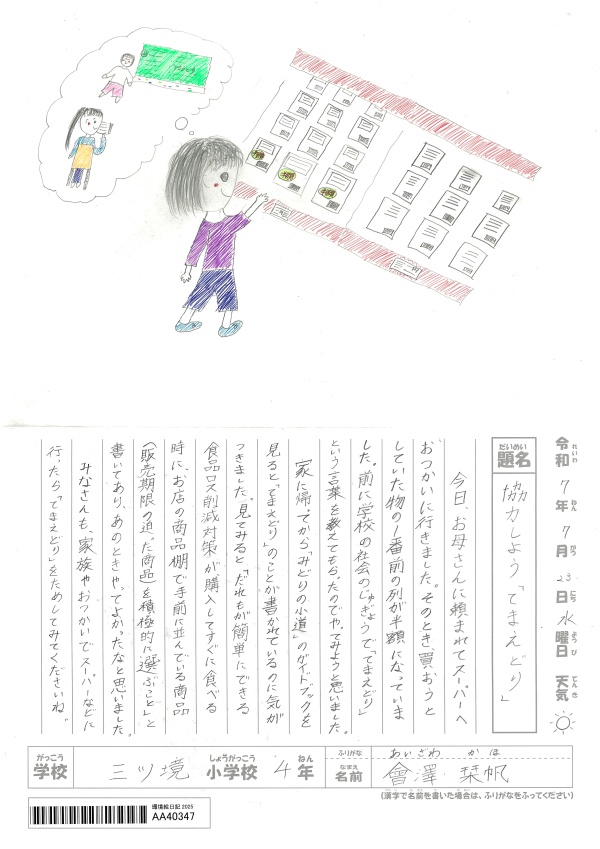 てまえどり
半額
半額
半額
令和7年7月23日水曜日 天気
れいわ ねん がつ にち ようび てんき
だいめい
題名
協力しよう「てまえどり」
今日、お母さんに頼まれてスーパーへ
おつかいに行きました。そのとき、買おうと
していた物の1番前の列が半額になっていま
した。前に学校の社会のじゅぎょうで「てまえどり」
という言葉を教えてもらったのでやってみようと思いました。
家に帰ってから「みどりの小道」のガイドブックを
見ると「てまえどり」のことが書かれているのに気が
つきました。見てみると「だれもが簡単にできる
食品ロス削減対策が購入してすぐに食べる
時に、お店の商品棚で手前に並んでいる商品
(販売期限の迫った商品)を積極的に選ぶこと」と
書いてあり、あのときやってよかったなと思いました。
みなさんも、家族やおつかいでスーパーなどに
行ったら「てまえどり」をためしてみてくださいね。
がっこう
学校
三ツ境
しょうがっこう
小学校
4
ねん
年
ふりがな
あいざわ かほ
なまえ
名前
會澤 栞帆
(漢字で名前を書いた場合は、ふりがなをふってください)
環境絵日記 2025
AA40347